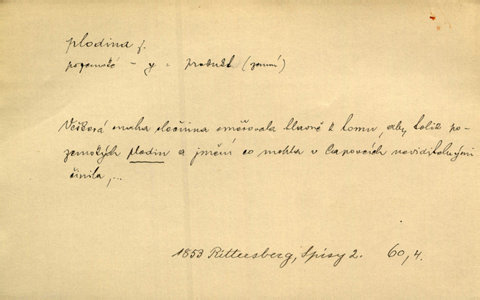 plodina f.
pozemské - y = produkt (zemní)
Veškerá snaha zločinna směřovala hlavně k tomu, aby tolik po-
zemských plodin a jmění co mohla v čapovcích neviditelnými
činila, ...
1853 Rittersberg, Spisy 2. 60, 4.